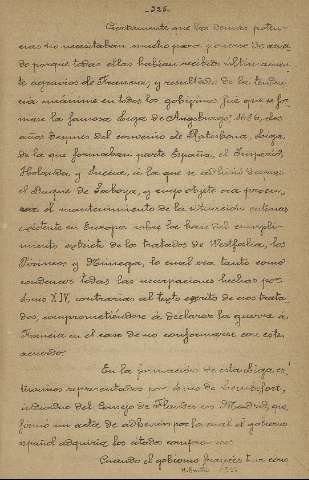 -326-
Ciertamente que las demás poten-
cias no necesitaban mucho para ponerse de acuer-
do porque todas ellas habían recibido ultimamente
agravios de Francia, y resultado de la tenden-
cia unánime en todos los gobiernos fué que se for-
mase la famosa Liga de Augsburgo 1686, dos
años después del convenio de Ratisbona. Liga,
de la que formaban parte España, el Imperio,
Holanda y Suecia, á la que se adhirió después
el Duque de Saboya, y cuyo objeto era procu-
rar el mantenimiento de la situación entonces
existente en Europa sobre las bases del cumpli-
miento estricto de los tratados de Westfalia, los
Pirineos y Nimega, lo cual era tanto como
condenar todas las incorporaciones hechas por
Luis XIV, contrarias al texto escrito de esos trata-
dos, comprometiéndose á declarar la guerra á
Francia en el caso de no conformarse con este
acuerdo.
En la formación de esta Liga es-
tuvimos representados por
individuo del Consejo de Flandes en Madrid, que
firmó un acta de adhesión por la cual el gobierno
español adquiría los citados compromisos.
Cuando el gobierno francés tuvo cono